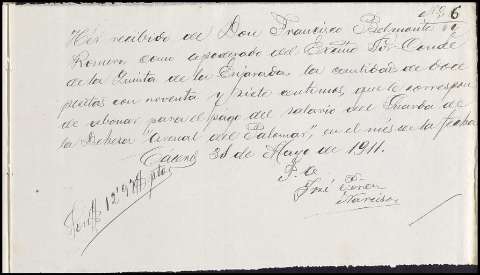 Nº 6
He recibido de Don Francisco Belmonte y
Romero como apoderado del Exctmo Sor Conde
de la Quinta de la Enjarada la cantidad de doce
pesetas con noventa y siete centimos, que le correspon
de abonar para el pago del salario del Guarda de
la Dehesa "Arenal del Palomar", en el mes de la fecha
Caceres 31 de Mayo de 1911.
P. O.
José
Narciso
Son 12'97 ptas